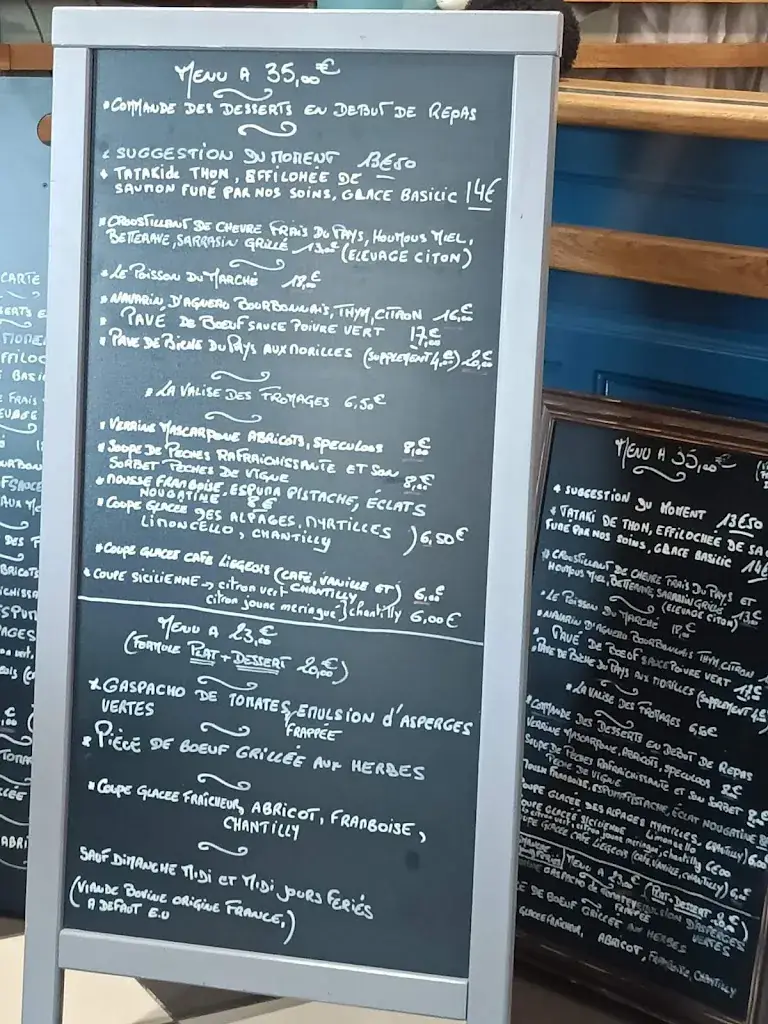 MENU A 35,00€
*COMMANDE DES DESSERTS EN DEBUT DE REPAS
SUGGESTION DU MOMENT 13€50
TATAKI de THON, EFFILOHÉE DE
SAUMON FUMÉ PAR NOS SOINS, GLACE BASILIC 14€
*CROUSTILLANT DE CHEVRE FRAIS DU PAYS, HOUMOUS MIEL,
BETTERAVE, SARRASIN GRILLÉ 13,00€ (ELEVAGE CITON)
*LE POISSON DU MARCHÉ 18,00€
*NAVARIN D'AGNEAU BOURBONNAIS, THYM, CITRON 16,00€
* PAVÉ DE BOEUF SAUCE POIVRE VERT 17,00€
*PAVE DE BICHE DU PAYS AUX MORILLES (SUPPLEMENT 4,00€) 20,00€
*LA VALISE DES FROMAGES 6,50€
*VERRINE MASCARPONE ABRICOTS, SPECULOOS 8,00€
*SOUPE DE PECHES RAFRAICHISSANTE ET SON
SORBET PECHES DE VIGNE 8,00€
*MOUSSE FRAMBOISE, ESPUMA PISTACHE, ÉCLATS
NOUGATINE 8€
*COUPE GLACEE DES ALPAGES, MYRTILLES
LIMONCELLO, CHANTILLY ) 6,50€
*COUPE GLACEE CAFE LIEGEOIS (CAFÉ, VANILLE ET
CHANTILLY) 6,00€
*COUPE SICILIENNE → citron vert,
citron jaune meringué } chantilly 6,00€
MENU A 23,00€
(FORMULE PLAT + DESSERT 20,00€)
*GASPACHO DE TOMATES, EMULSION d'ASPERGES
VERTES FRAPPÉE
*PIÈCE DE BOEUF GRILLÉE AUX HERBES
*COUPE GLACEE FRAÎCHEUR, ABRICOT, FRAMBOISE,
CHANTILLY
SAUF DIMANCHE MIDI ET MIDI JOURS FERIÉS
(VIANDE BOVINE ORIGINE FRANCE,
A DEFAUT E.U)
MENU A 35,00€
* SUGGESTION DU MOMENT 13€50
* TATAKI DE THON, EFFILOCHÉE DE SA
FUMÉ PAR NOS SOINS, GLACE BASILIC 14€
CROUSTILLANT DE CHEVRE FRAIS DU PAYS ET
HOUMOUS MIEL, BETTERAVE, SARRASIN GRILLÉ 13,00
(ELEVAGE CITON)
*LE POISSON DU MARCHÉ 18,00€
*NAVARIN D'AGNEAU BOURBONNAIS THYM CITRON
* PAVÉ DE BOEUF SAUCE POIVRE VERT 17,00€
*PAVE DE BICHE DU PAYS AUX MORILLES (SUPPLEMENT 4€)
*LA VALISE DES FROMAGES 6,5€
*COMMANDE DES DESSERTS EN DEBUT DE REPAS
VERRINE MASCARPONE, ABRICOTS, SPECULOOS 8€
SOUPE DE PECHES RAFRAICHISSANTE ET SON SORBET 8€
PECHE DE VIGNE
MOUSSE FRAMBOISE, ESPUMA PISTACHE, ÉCLAT NOUGATINE
COUPE GLACEE DES ALPAGES MYRTILLES, Limoncello, CHANTILLY) 6,00
COUPE GLACÉE SICILIENNE
citron vert, citron jaune meringué, chantilly 6€00
COUPE GLACEE CAFE LIEGEOIS (CAFE, VANILLE, CHANTILLY) 6,00€
MENU A 23,00€ (PLAT+DESSERT 20€)
GASPACHO de TOMATES EMULSION D'ASPERGES
FRAPPÉE VERTES
E DE BOEUF GRILLÉE AUX HERBES
GLACEE FRAÎCHEUR, ABRICOT, FRAMBOISE, CHANTILLY
CARTE